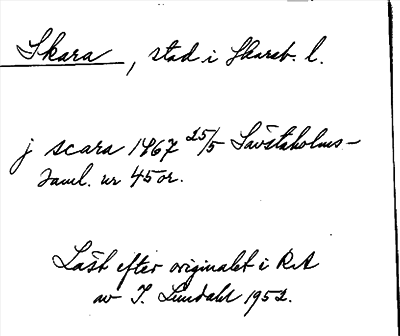 Skara, stad i Skarab. l.
j scara 1467 25/5 Sävstaholms-
saml. nr 45 or.
Läst efter originalet i RA
av I. Lundahl 1952.